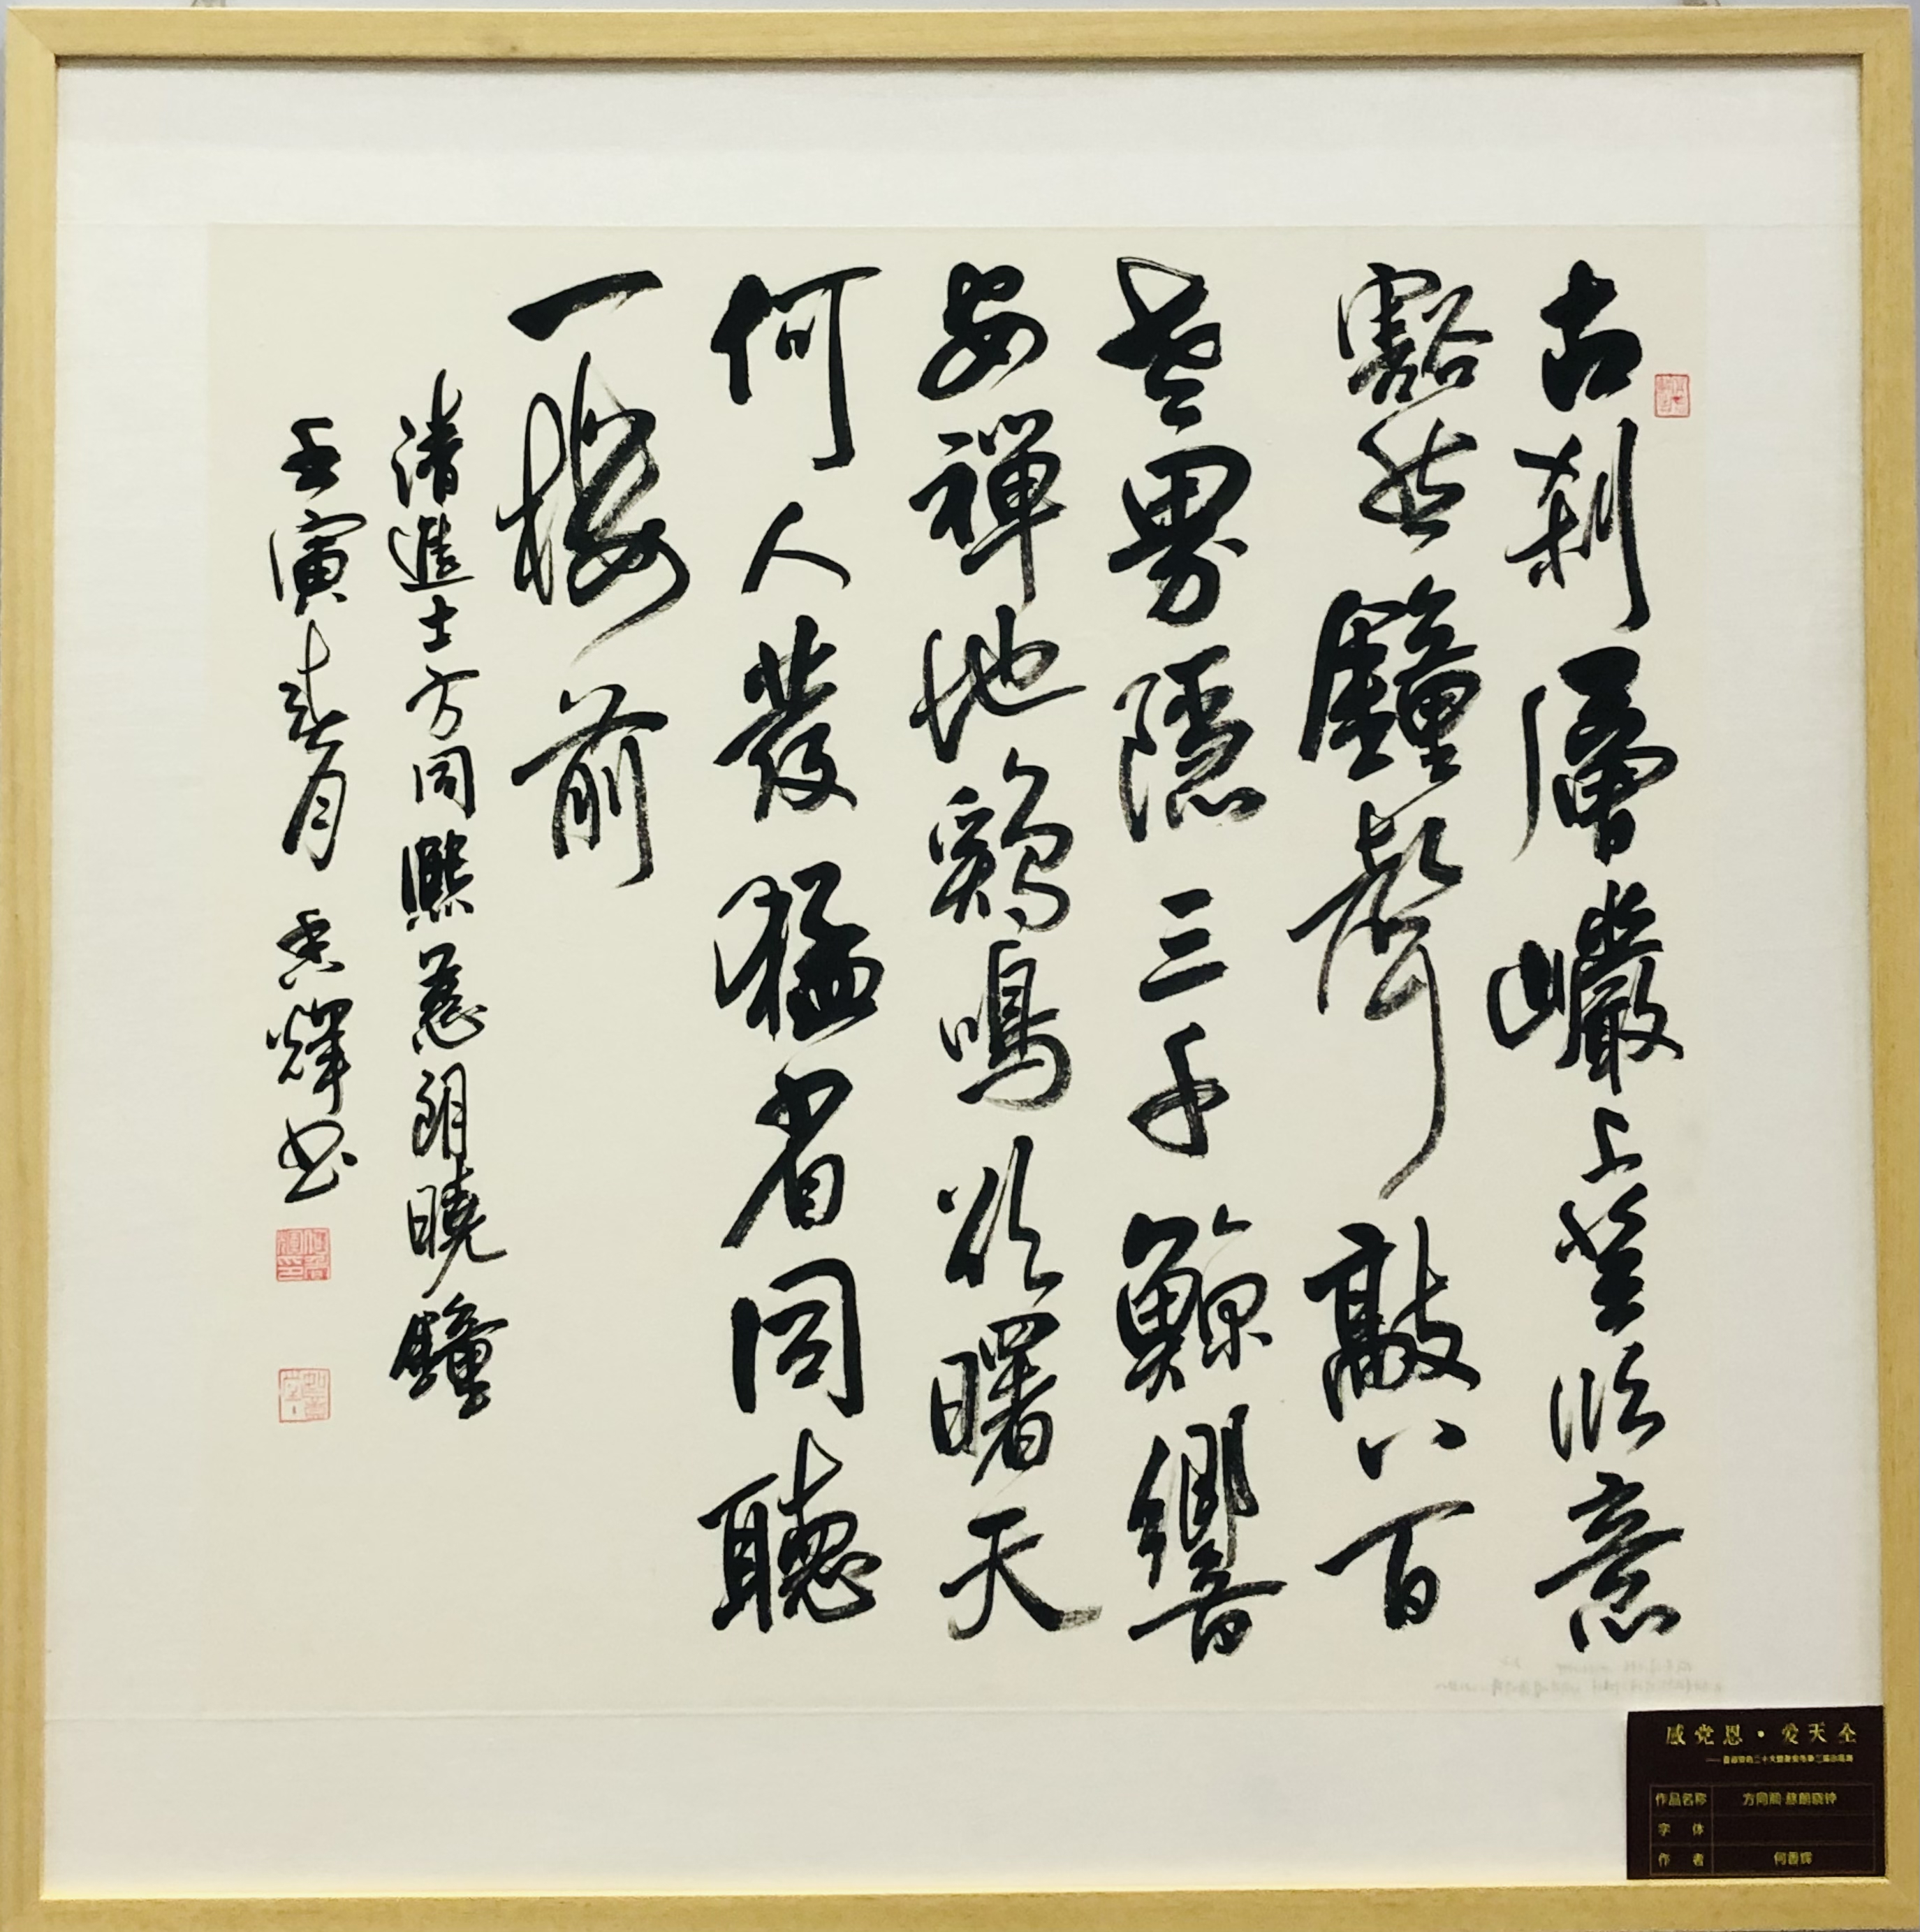 古刹層巖上登臨意
豁然鐘聲敲八百
世界隱三千鯨響
安禪地鷄鳴欲曙天
何人發猛省同聽
一樓前
清進士方同熙慈朗曉鐘
壬寅春月香輝书
感党恩·爱天全
作品名称 方同熙·慈朗晓钟
字体
作者 何香辉